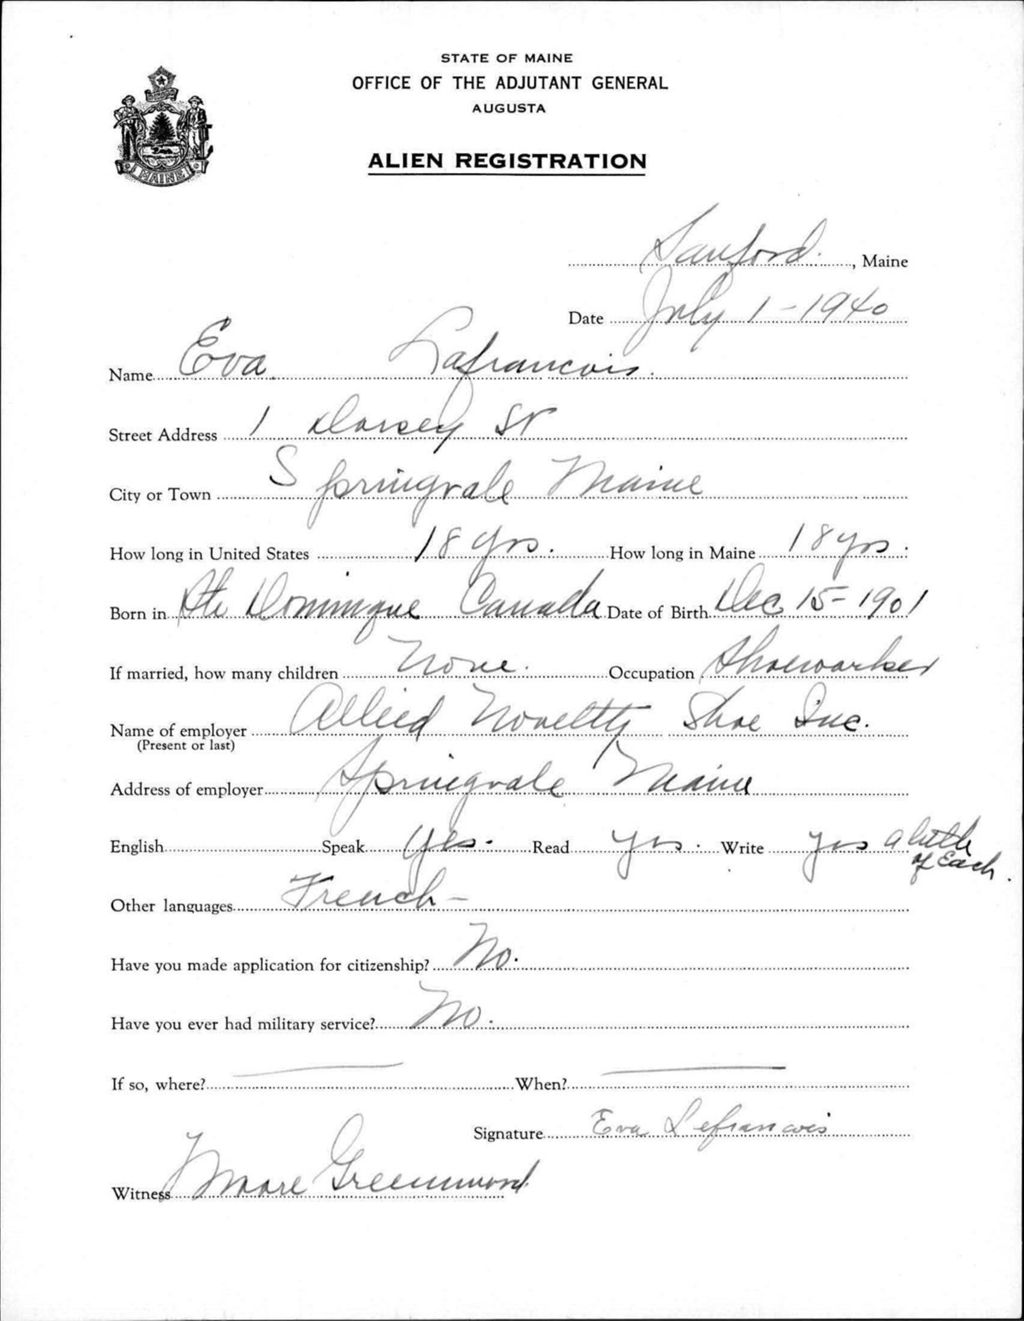 STATE OF MAINE
OFFICE OF THE ADJUTANT GENERAL
AUGUSTA
ALIEN REGISTRATION
MAINE
Sanford, Maine
Date July 1-1940
Name Eva Lafrancois.
Street Address 1 Dorsey St
City or Town Springvale Maine
How long in United States 18 yrs. How long in Maine 18 yrs.
Born in Ste Dominique Canada Date of Birth Dec 15-1901
If married, how many children None. Occupation Shoeworker
Name of employer Allied Novelty Shoe Inc.
(Present or last)
Address of employer Springvale Maine
English Speak Yes. Read yes. Write yes a little of Each.
Other languages French -
Have you made application for citizenship? No.
Have you ever had military service? No.
If so, where? — When? —
Signature Eva Lefrancois
Witness Moore Greenwood